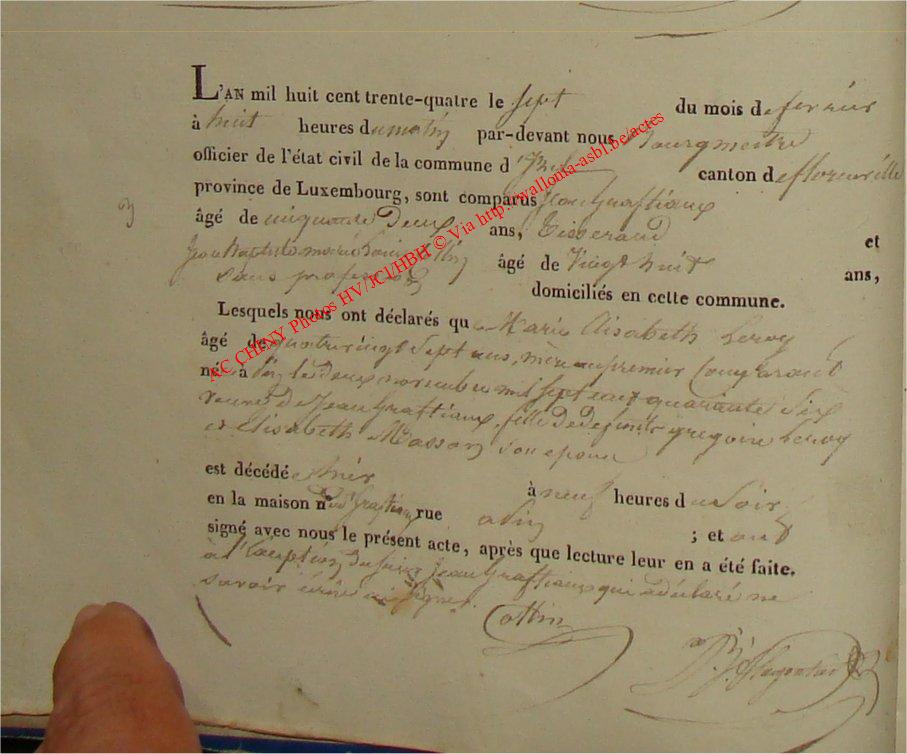 3
L'AN mil huit cent trente-quatre le sept du mois de fevrier
à huit heures du matin par-devant nous Bourgmestre
officier de l'état civil de la commune d' canton de florenville
province de Luxembourg, sont comparus Jean Graftiaux
âgé de cinquante Deux ans, Tisserand et
Jean Baptiste marie Cottin âgé de Vingt huit ans,
Sans profession domiciliés en cette commune.
Lesquels nous ont déclarés que Marie Elisabeth Leroy
âgé de quatrevingt Sept ans, mère au premier Comparant
né à le deux novembre mil Sept cent quarante Six
veuve de Jean Graftiaux, fille de defunts gregoire Leroy
et Elisabeth Masson son epouse
est décédé hier à neuf heures du Soir
en la maison Graftiaux rue ; et ont
signé avec nous le présent acte, après que lecture leur en a été faite.
à l'exception du sieur Jean Graftiaux qui a déclaré ne
savoir écrire ni signer.
Cottin
AC CHINY Photos HV/JCI/HBH © Via http://wallonia-asbl.be/actes